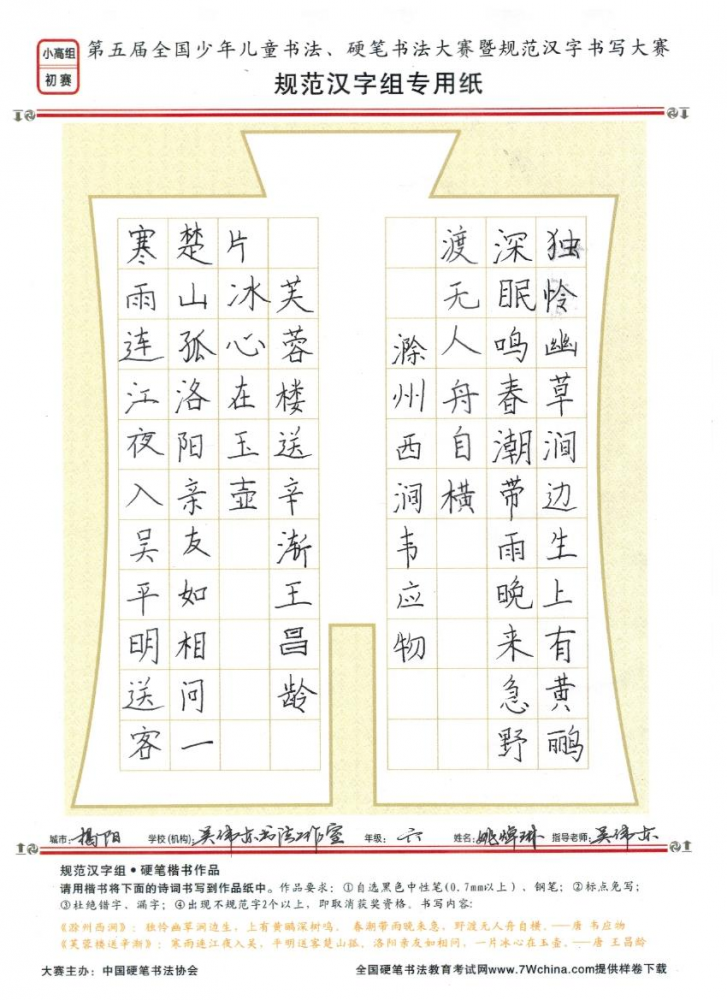 小高组
初赛
第五届全国少年儿童书法、硬笔书法大赛暨规范汉字书写大赛
规范汉字组专用纸
独怜幽草涧边生上有黄鹂
深眠鸣春潮带雨晚来急野
渡无人舟自横
滁州西涧韦应物
寒雨连江夜入吴平明送客
楚山孤洛阳亲友如相问一
片冰心在玉壶
芙蓉楼送辛渐王昌龄
城市：揭阳 学校(机构)：吴伟东书法工作室 年级：六 姓名：姚焯琳 指导老师：吴伟东
规范汉字组•硬笔楷书作品
请用楷书将下面的诗词书写到作品纸中。作品要求：①自选黑色中性笔(0.7mm以上)、钢笔；②标点免写；
③杜绝错字、漏字；④出现不规范字2个以上，即取消获奖资格。书写内容：
《滁州西涧》：独怜幽草涧边生，上有黄鹂深树鸣。春潮带雨晚来急，野渡无人舟自横。——唐 韦应物
《芙蓉楼送辛渐》：寒雨连江夜入吴，平明送客楚山孤。洛阳亲友如相问，一片冰心在玉壶。——唐 王昌龄
大赛主办：中国硬笔书法协会
全国硬笔书法教育考试网www.7Wchina.com提供样卷下载